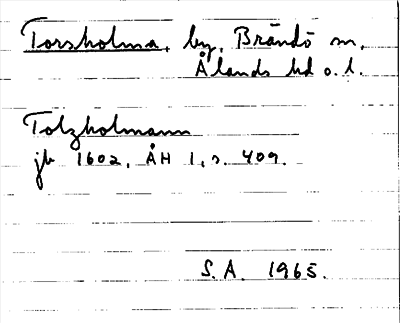 Torsholma, by, Brändö sn,
Ålands hd o. l.
Tolzholmann
jb 1602, ÅH 1, s. 409.
S.A. 1965.